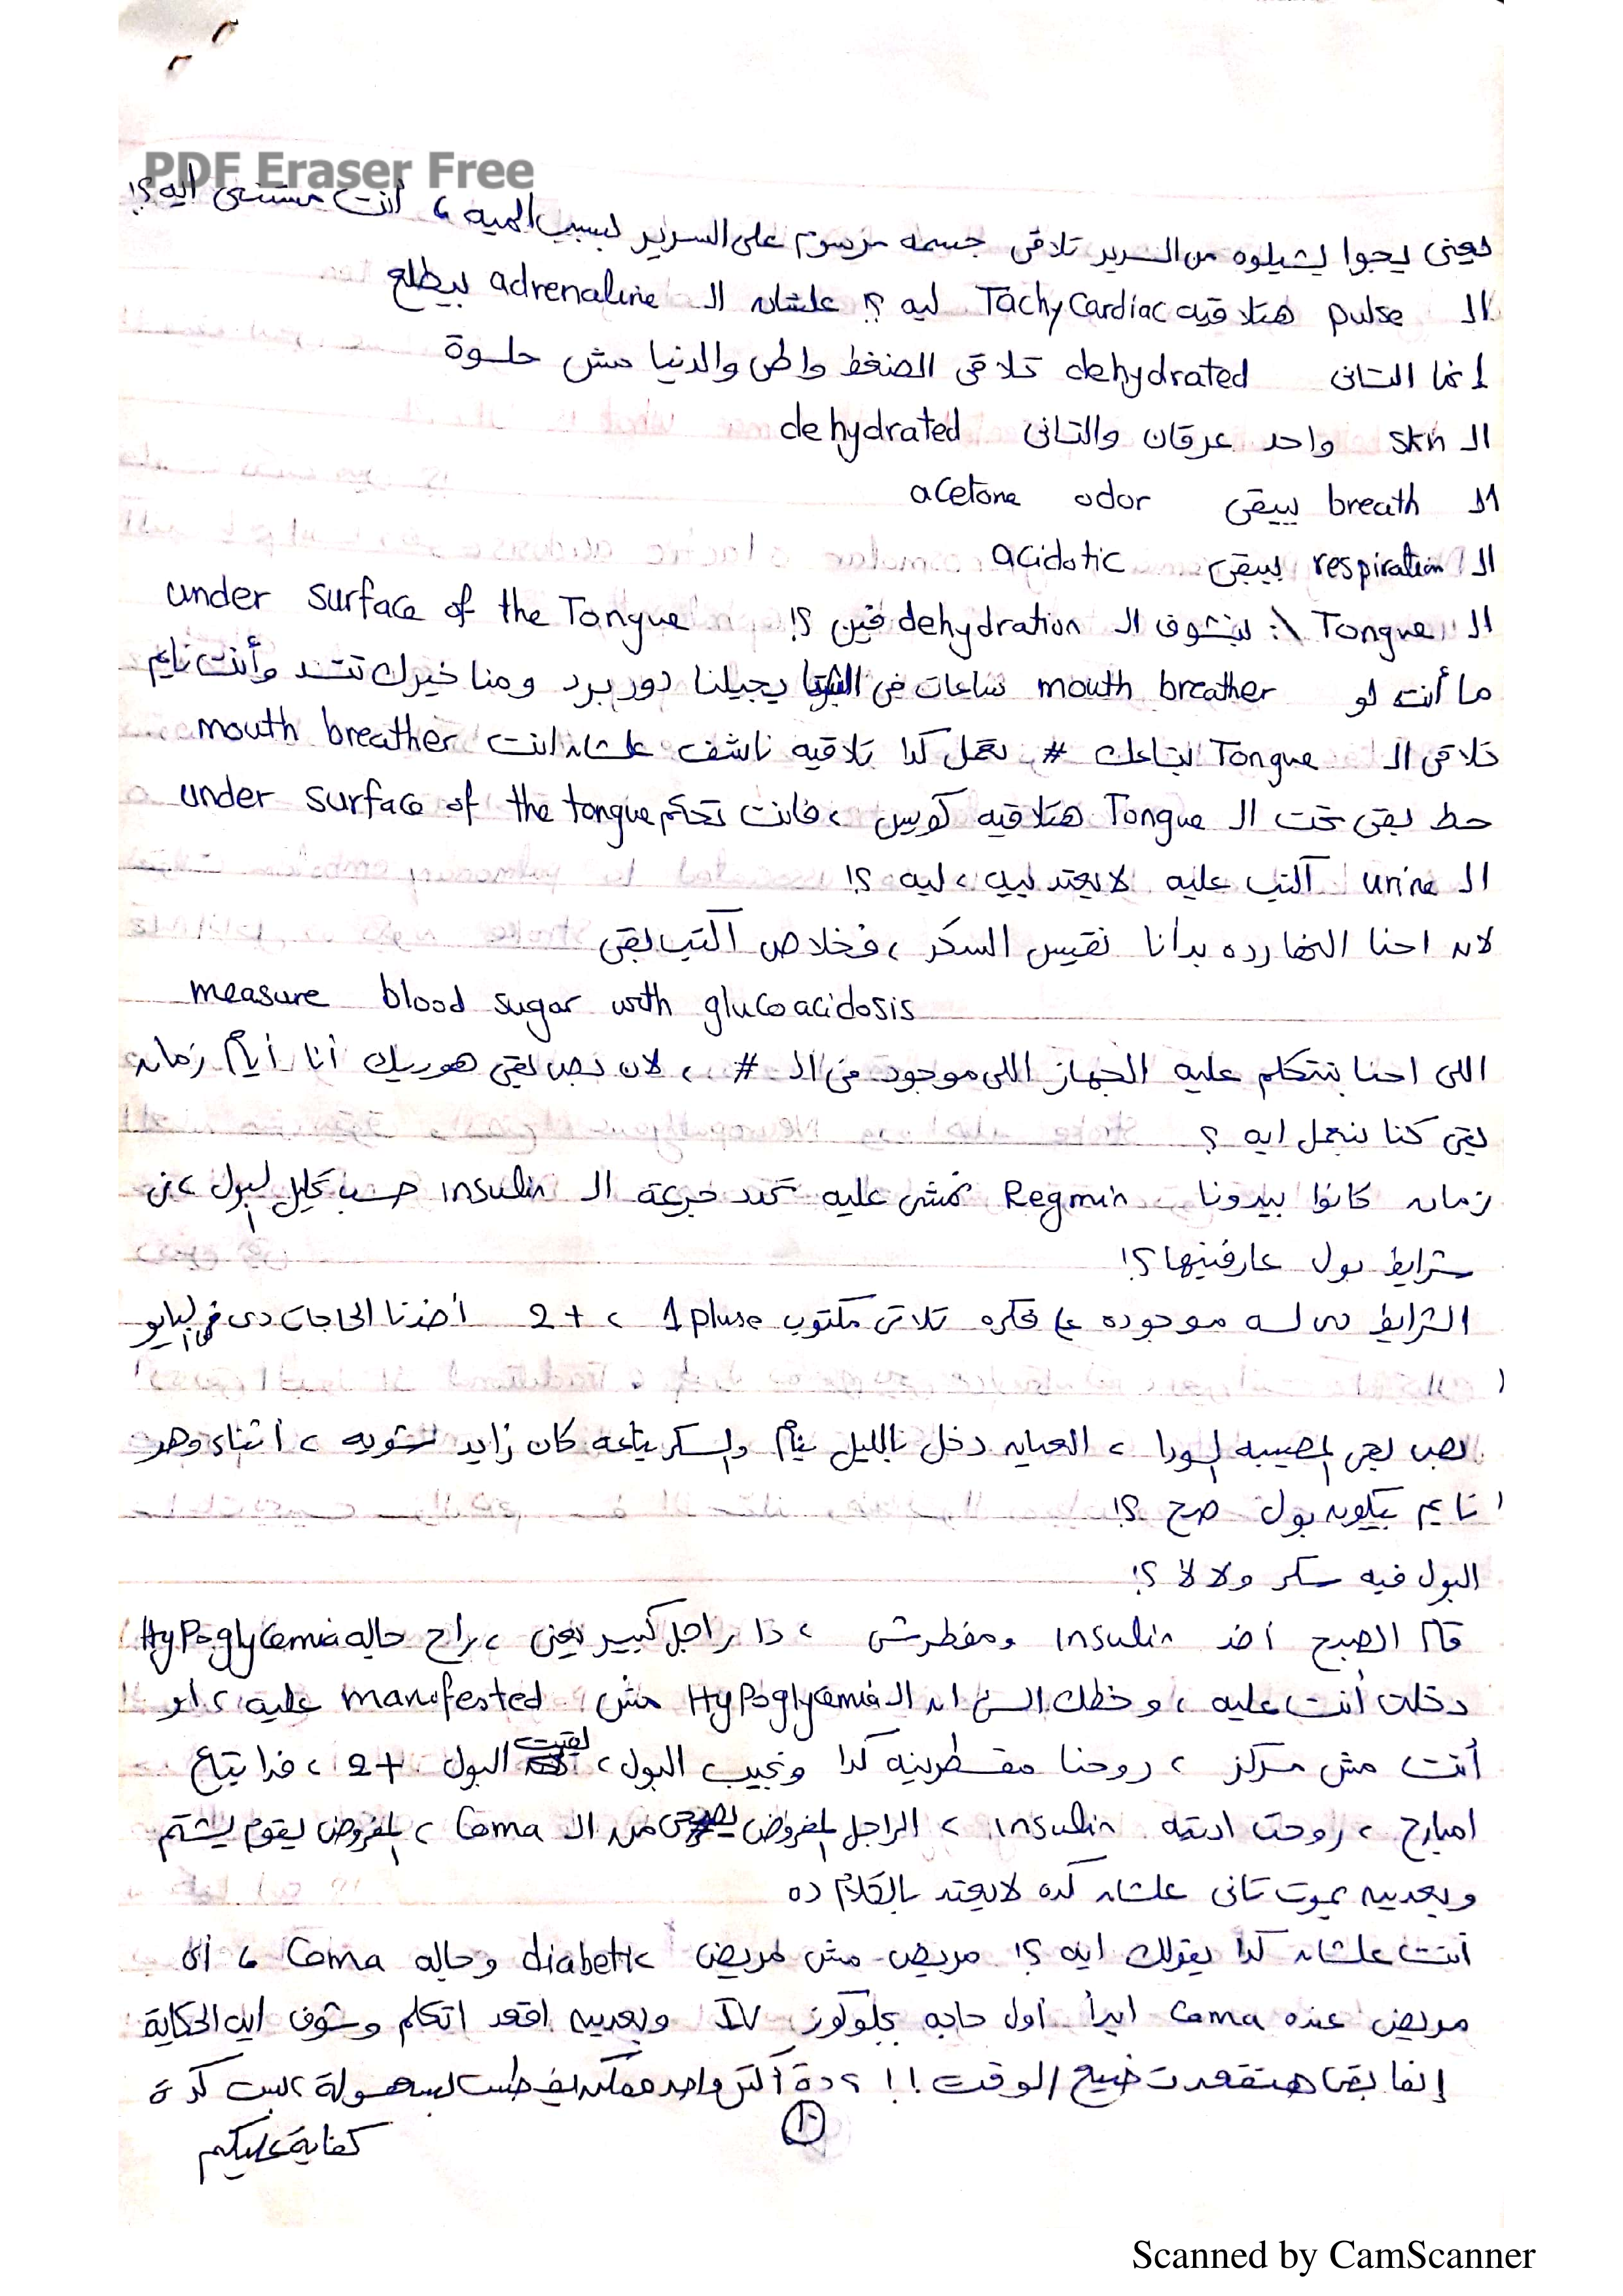 PDF Eraser Free
يعنى يجوا يشيلوه من السرير تلاقى جسمه مرسوم على السرير بسبب الميه ، أنت مستنى ايه ؟!
الـ pulse هتلاقيه Tachycardiac ليه ؟! علشان الـ adrenaline بيطلع
إنما التانى dehydrated تلاقى الضغط واطى والدنيا مش حلوة
الـ skin واحد عرقان والتانى dehydrated
الـ breath يبقى acetone odor
الـ respiration يبقى acidotic
الـ Tongue \: بنشوف الـ dehydration فين ؟! under surface of the Tongue
ما أنت لو mouth breather ساعات فى الشتا يجيلنا دور برد ومناخيرك تتسد وأنت نايم
تلاقى الـ Tongue بتاعك # تعمل كدا تلاقيه ناشف علشان انت mouth breather
حط بقى تحت الـ Tongue هتلاقيه كويس ، فانت تحكم under surface of the tongue
الـ urine اكتب عليه لا يعتد بيه ، ليه ؟!
لان احنا النهارده بدأنا نقيس السكر ، فخلاص اكتب بقى
measure blood sugar with glucoacidosis
اللى احنا بنتكلم عليه الجهاز اللى موجود فى الـ # ، لان بص بقى هوريك أنا أيام زمان
بقى كنا بنعمل ايه ؟
زمان كانوا بيدونا Regmin نمشى عليه نحدد جرعة الـ insulin حسب تحليل البول ، فى
شرايط بول عارفينها ؟!
الشرايط دى لسه موجوده على فكره تلاقى مكتوب 1 pluse ، 2+ أخدنا الحاجات دى فى البايو
بص بقى المصيبه السودا ، العيان دخل بالليل ينام والسكر بتاعه كان زايد شويه ، أثناء وهو
نايم بيكون بول صح ؟!
البول فيه سكر ولا لا ؟!
قام الصبح أخد insulin ومفطرش ، دا راجل كبير يعنى ، راح جاله Hypoglycemia
دخلت أنت عليه ، وحظك السئ ان الـ Hypoglycemia مش manofested عليه ، او
أنت مش مركز ، روحنا مقسطرينه كدا ونجيب البول ، لقيت البول 2+ ، فدا بتاع
امبارح ، روحت اديته insulin ، الراجل المفروض يصحى من الـ Coma ، المفروض يقوم يشتم
وبعدين يموت تانى علشان كده لا يعتد بالكلام ده
أنت علشان كدا يقولك ايه ؟! مريض مش مريض diabetic وجاله Coma ، أى
مريض عنده Coma ابدأ أول حاجه بجلوكوز IV وبعدين اقعد اتكلم وشوف ايه الحكاية
إنما بقى هتقعد تضيع الوقت !! ، دة أكتر واحد ممكن يفطس بسهولة ، بس كدة
كفاية عليكم
١٠
Scanned by CamScanner